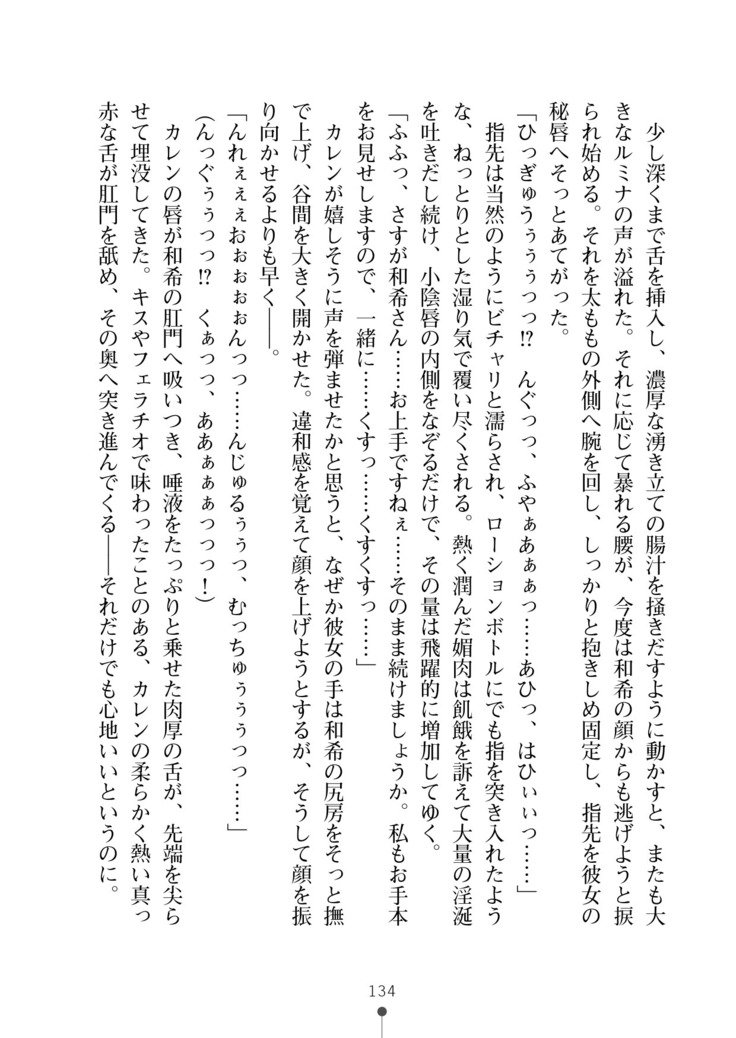 少し深くまで舌を挿入し、濃厚な湧き立ての腸汁を掻きだすように動かすと、またも大
きなルミナの声が溢れた。それに応じて暴れる腰が、今度は和希の顔からも逃げようと捩
られ始める。それを太ももの外側へ腕を回し、しっかりと抱きしめ固定し、指先を彼女の
秘唇へそっとあてがった。
「ひっぎゅうぅぅぅっっ!?　んぐっっ、ふやぁあぁぁっ……あひっ、はひぃぃっ……」
指先は当然のようにビチャリと濡らされ、ローションボトルにでも指を突き入れたよう
な、ねっとりとした湿り気で覆い尽くされる。熱く潤んだ媚肉は飢餓を訴えて大量の淫涎
を吐きだし続け、小陰唇の内側をなぞるだけで、その量は飛躍的に増加してゆく。
「ふふっ、さすが和希さん……お上手ですねぇ……そのまま続けましょうか。私もお手本
をお見せしますので、一緒に……くすっ……くすくすっ……」
カレンが嬉しそうに声を弾ませたかと思うと、なぜか彼女の手は和希の尻房をそっと撫
で上げ、谷間を大きく開かせた。違和感を覚えて顔を上げようとするが、そうして顔を振
り向かせるよりも早く――。
「んれぇぇぇおぉぉぉぉんっっ……んじゅるぅぅっ、むっちゅぅぅぅっっ……」
(んっぐぅぅっっ!?　くぁっっ、ああぁぁぁっっっ！)
カレンの唇が和希の肛門へ吸いつき、唾液をたっぷりと乗せた肉厚の舌が、先端を尖ら
せて埋没してきた。キスやフェラチオで味わったことのある、カレンの柔らかく熱い真っ
赤な舌が肛門を舐め、その奥へ突き進んでくる――それだけでも心地いいというのに。
134